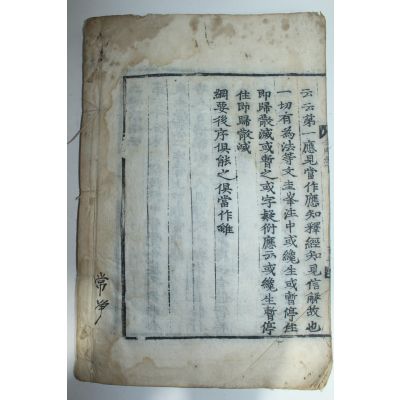 云云第一應見當作應知釋經知見信解故也
一切有為法等文圭峯注中或纔生或暫停住
即歸散滅或暫之或字疑衍應云或纔生暫停
住即歸散滅
綱要後序俱能之俱當作雖